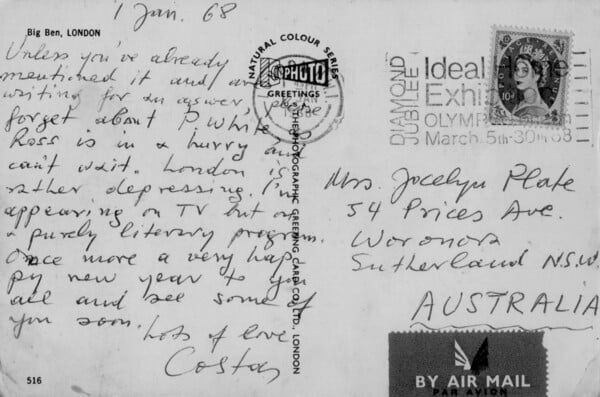 1 Jan. 68
Big Ben, LONDON
Unless you've already
mentioned it and are
writing for an answer please
forget about P. White
Ross is in a hurry and
can't wait. London is
rather depressing. I'm
appearing on TV but on
a purely literary program.
Once more a very hap-
py new year to you
all and see some of
you soon.
Lots of love
Costas
516
NATURAL COLOUR SERIES
PHOTO
GREETINGS
THE PHOTOGRAPHIC GREETING CARD CO. LTD., LONDON
DIAMOND
JUBILEE
Ideal Home
Exhi
OLYMP
March. 5th-30th 68
10d
Mrs. Jocelyn Plate
54 Prices Ave.
Woronora
Sutherland N.S.W.
AUSTRALIA
BY AIR MAIL
PAR AVION